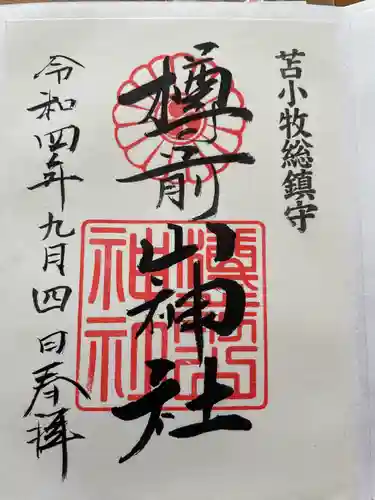 苫小牧総鎮守
樽前山神社
令和四年九月四日奉拝
樽前山神社